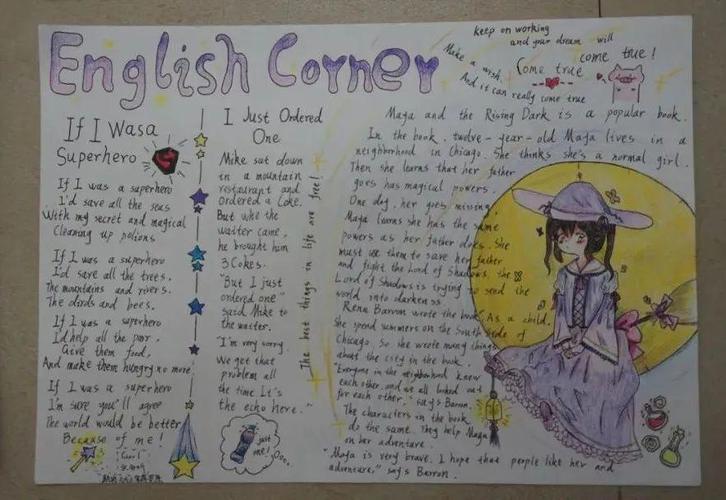 English Corner
keep on working
and your dream will
come true !
Come true
Make a wish.
And it can really come true
If I Was a
Superhero
If I was a superhero
I'd save all the seas
With my secret and magical
Cleaning up potions
If I was a superhero
I'd save all the trees,
The mountains and rivers.
The dirds and bees.
If I was a superhero
I'd help all the poor,
Give them food,
And make them hungry no more
If I was a superhero
I'm sure you'll agree
The world would be better
Because of me !
I Just Ordered
One
Mike sat down
in a mountain
restaurant and
ordered a Coke.
But whe the
waiter came,
he brought him
3 Cokes.
"But I just
ordered one"
said Mike to
the waiter.
"I'm very sorry.
We get that
problem all
the time It's
the echo here."
just
me! Ooo.
The best things in life are free!
Maya and the Rising Dark is a popular book.
In the book, twelve-year-old Maya lives in a
neighborhood in Chicago. She thinks she's a normal girl.
Then she learns that her father
goes has magical powers.
One day, her goes missing.
Maya learns she has the same
powers as her father does. She
must use them to save her father
and fight the Lord of Shadows. the
Lord of Shadows is trying to send the
world into darkenss.
Rena Barron wrote the book. As a child,
She spend summers on the South Side of
Chicago. So she wrote many things
about the city in the book.
"Everyone in the neighborhood knew
each other, and we all looked out
for each other," says Baron.
The characters in the book
do the same. They help Maya
on her adventure.
"Maya is very brave. I hope that people like her and
adventure," says Barron.